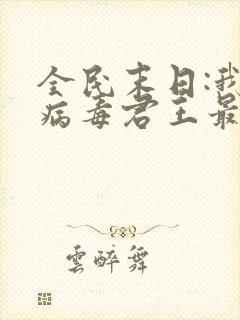 全民末日:我
病毒君王最
雲醉舞